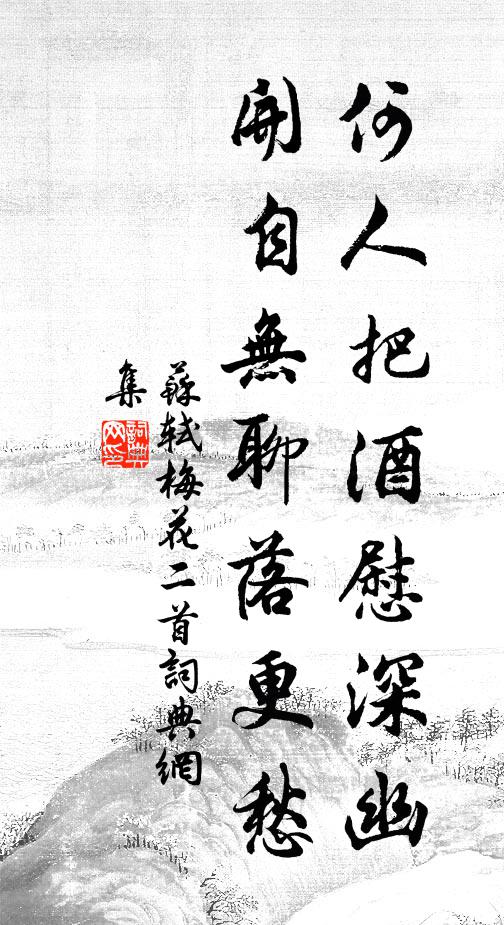 何人把酒慰深幽
開自無聊落更愁
蘇軾梅花二首詞典網
集
詞典網